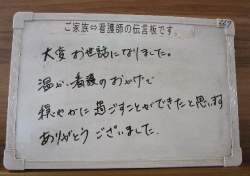 ご家族⇔看護師の伝言板です。
大変お世話になりました。
温かい看護のおかげで
穏やかに過ごすことができたと思います
ありがとうございました。